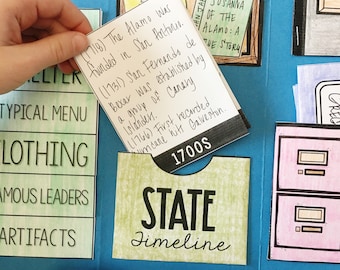 SHELTER
TYPICAL MENU
CLOTHING
FAMOUS LEADERS
ARTIFACTS
The Alamo was
founded in San Antonio.
(1731) San Fernando de
Bexar was established by
a group of Canary
Islanders
(1766) First recorded
hurricane hit Galveston
1700S
STATE
Timeline
SUSANNA
OF THE
ALAMO: A